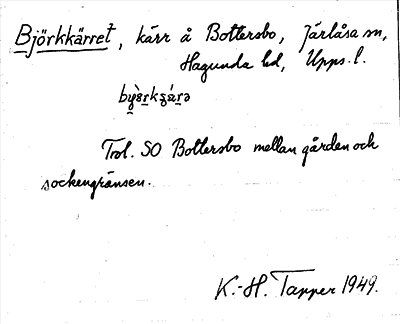 Björkkärret, kärr å Bottersbo, Järlåsa sn,
Hagunda hd, Upps. l.
SO Bottersbo mellan gården och
sockengränsen.
K.-H. Tapper 1949.